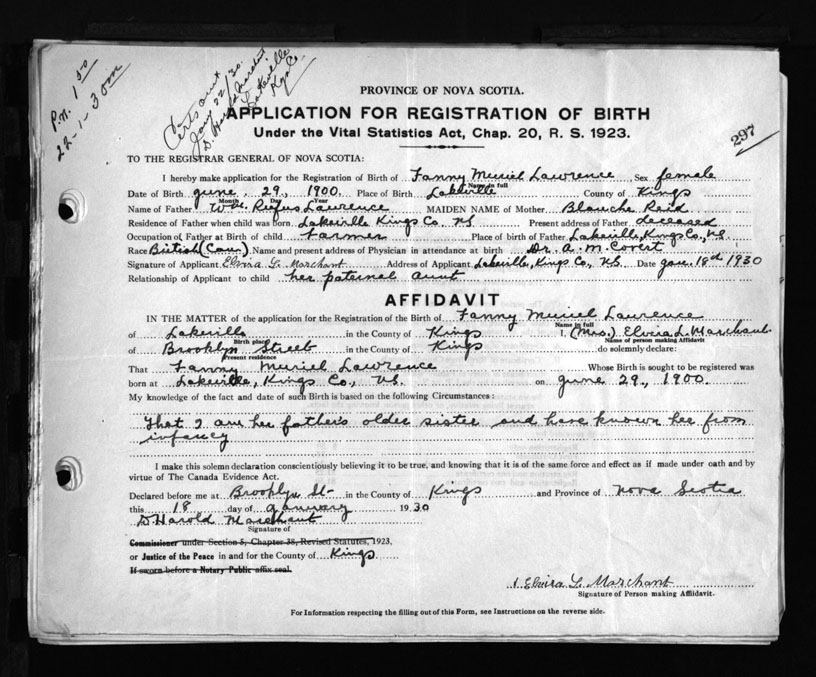 P.N. 1 50
22-1-30
Certs out
Jany 22/30.
D Harold Marchant
Lakeville
Kgs Co.
PROVINCE OF NOVA SCOTIA.
APPLICATION FOR REGISTRATION OF BIRTH
Under the Vital Statistics Act, Chap. 20, R. S. 1923.
297
TO THE REGISTRAR GENERAL OF NOVA SCOTIA:
I hereby make application for the Registration of Birth of Fanny Muriel Lawrence Sex female
Name in full
Date of Birth June, 29, 1900. Place of Birth Lakeville County of Kings
Month Day Year
Name of Father Wm. Rufus Lawrence MAIDEN NAME of Mother Blanche Reid
Residence of Father when child was born Lakeville Kings Co NS Present address of Father deceased
Occupation of Father at Birth of child farmer Place of birth of Father Lakeville, Kings Co., N.S.
Race British (Can) Name and present address of Physician in attendance at birth Dr. A. M. Covert
Signature of Applicant Elvira L. Marchant Address of Applicant Lakeville, Kings Co., N.S. Date Jan. 18th 1930
Relationship of Applicant to child her paternal aunt
AFFIDAVIT
IN THE MATTER of the application for the Registration of the Birth of Fanny Muriel Lawrence
Name in full
of Lakeville in the County of Kings I, (Mrs.) Elvira L. Marchant
Birth place Name of person making Affidavit
of Brooklyn Street in the County of Kings do solemnly declare:
Present residence
That Fanny Muriel Lawrence Whose Birth is sought to be registered was
born at Lakeville, Kings Co., N.S. on June 29, 1900.
My knowledge of the fact and date of such Birth is based on the following Circumstances:
That I am her father's older sister and have known her from
infancy
I make this solemn declaration conscientiously believing it to be true, and knowing that it is of the same force and effect as if made under oath and by
virtue of The Canada Evidence Act.
Declared before me at Brooklyn St- in the County of Kings and Province of Nova Scotia
this 18 day of January 1930
D. Harold Marchant
Signature of
Commissioner under Section 5, Chapter 38, Revised Statutes, 1923,
or Justice of the Peace in and for the County of Kings
If sworn before a Notary Public affix seal.
Elvira L. Marchant
Signature of Person making Affidavit.
For Information respecting the filling out of this Form, see Instructions on the reverse side.